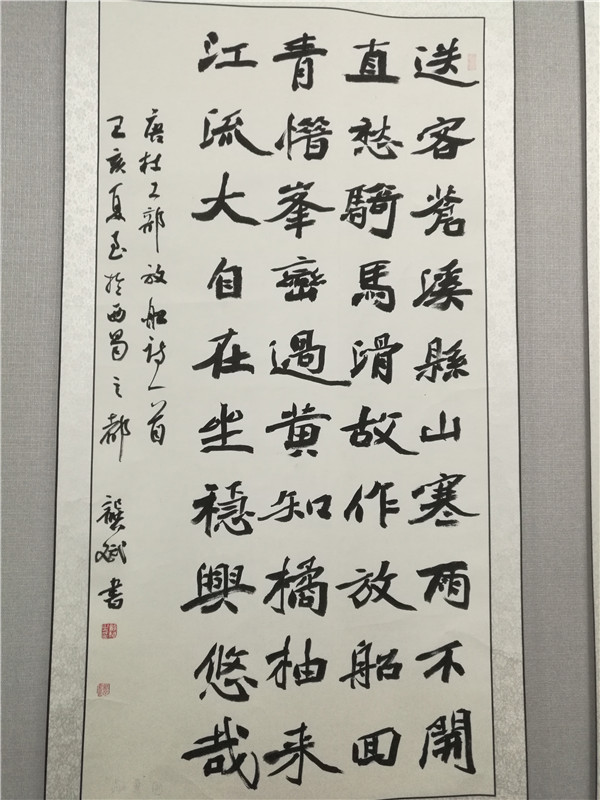 送客蒼溪縣山寒雨不開
直愁騎馬滑故作放船回
青惜峯巒過黄知橘柚来
江流大自在坐穩興悠哉
唐杜工部放船诗一首
己亥夏至於西蜀之都 龔斌書